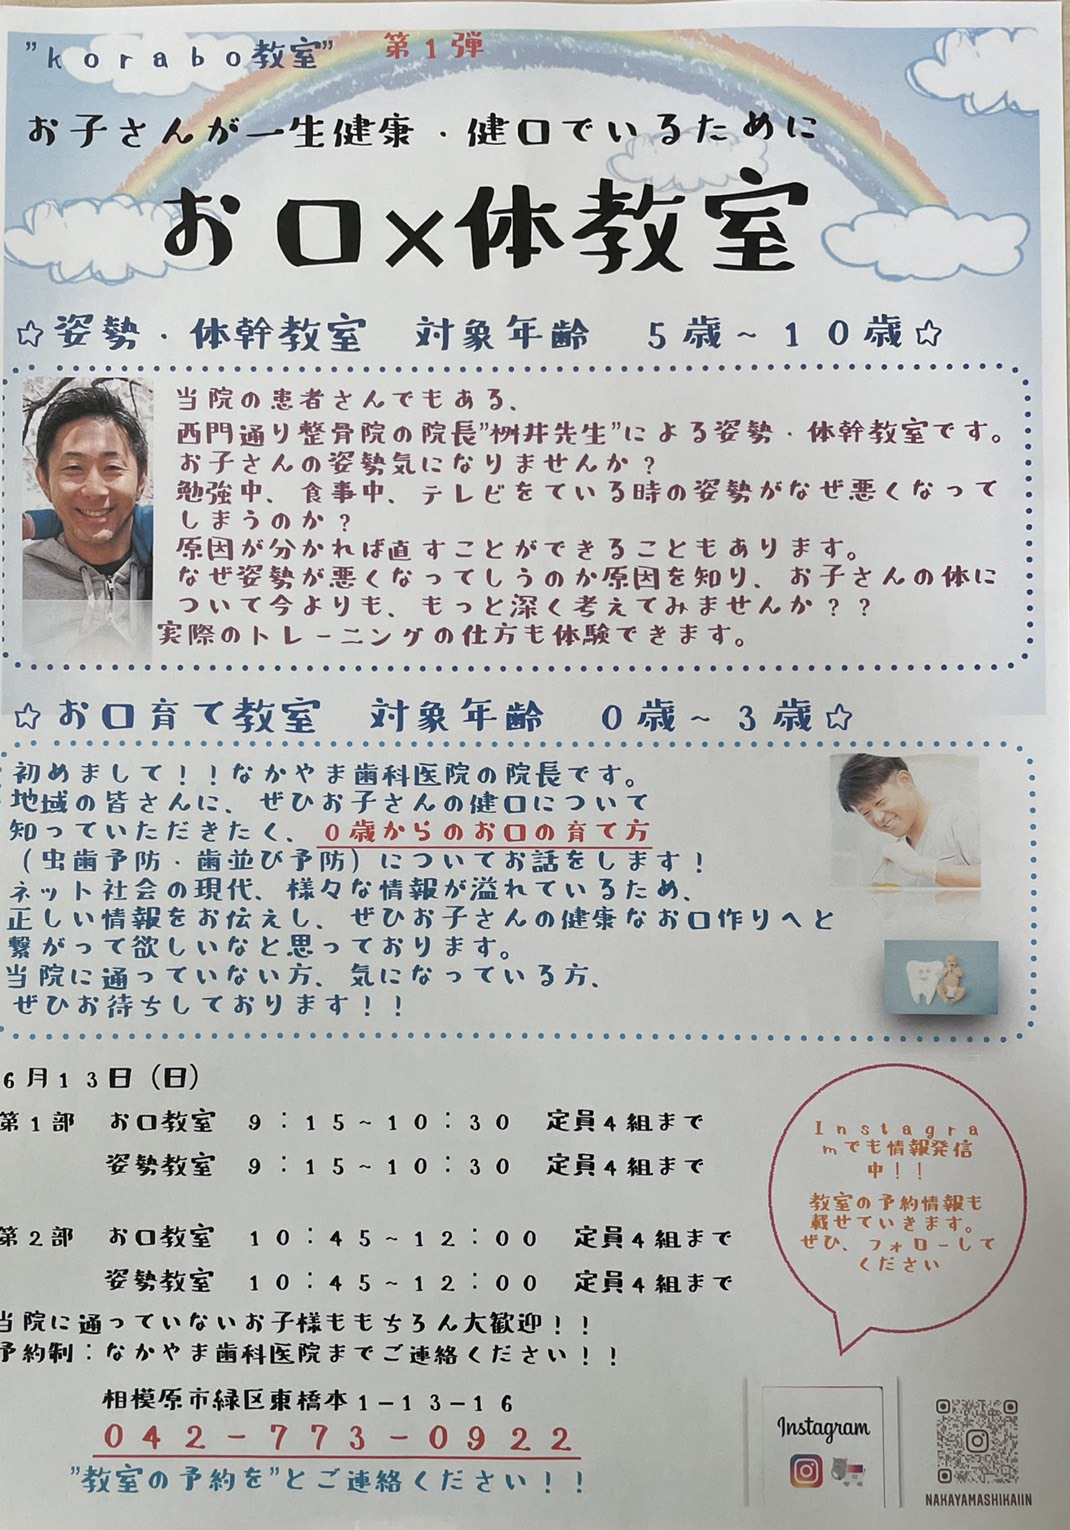 ”korabo教室” 第1弾
お子さんが一生健康・健口でいるために
お口×体教室
☆姿勢・体幹教室 対象年齢 5歳~10歳☆
当院の患者さんでもある、
西門通り整骨院の院長”桝井先生”による姿勢・体幹教室です。
お子さんの姿勢気になりませんか?
勉強中、食事中、テレビをている時の姿勢がなぜ悪くなって
しまうのか?
原因が分かれば直すことができることもあります。
なぜ姿勢が悪くなってしうのか原因を知り、お子さんの体に
ついて今よりも、もっと深く考えてみませんか??
実際のトレーニングの仕方も体験できます。
☆お口育て教室 対象年齢 0歳~3歳☆
初めまして!!なかやま歯科医院の院長です。
地域の皆さんに、ぜひお子さんの健口について
知っていただきたく、0歳からのお口の育て方
(虫歯予防・歯並び予防)についてお話をします!
ネット社会の現代、様々な情報が溢れているため、
正しい情報をお伝えし、ぜひお子さんの健康なお口作りへと
繋がって欲しいなと思っております。
当院に通っていない方、気になっている方、
ぜひお待ちしております!!
6月13日(日)
第1部 お口教室 9:15~10:30 定員4組まで
姿勢教室 9:15~10:30 定員4組まで
第2部 お口教室 10:45~12:00 定員4組まで
姿勢教室 10:45~12:00 定員4組まで
当院に通っていないお子様ももちろん大歓迎!!
予約制:なかやま歯科医院までご連絡ください!!
相模原市緑区東橋本1-13-16
042-773-0922
”教室の予約を”とご連絡ください!!
Instagra
mでも情報発信
中!!
教室の予約情報も
載せていきます。
ぜひ、フォローして
ください
Instagram
NAKAYAMASHIKAIIN